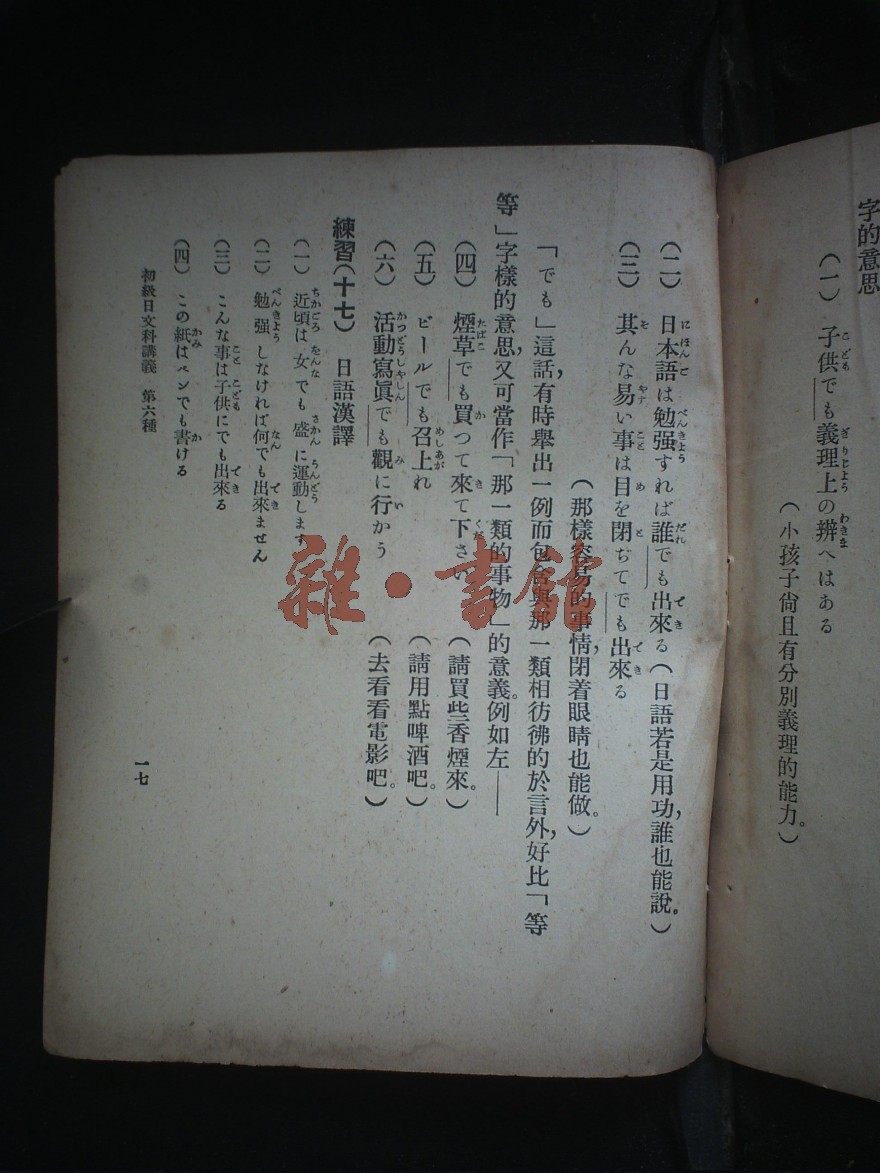 字的意思
(一) 子供でも義理上の辨へはある
(小孩子尙且有分別義理的能力。)
(二) 日本語は勉强すれば誰でも出來る(日語若是用功,誰也能說。)
(三) 其んな易い事は目を閉ぢてでも出來る
(那樣容易的事情,閉着眼睛也能做。)
「でも」這話,有時舉出一例而包含與那一類相彷彿的於言外,好比「等
等」字樣的意思,又可當作「那一類的事物」的意義。例如左——
(四) 煙草でも買つて來て下さい (請買些香煙來。)
(五) ビールでも召上れ (請用點啤酒吧。)
(六) 活動寫眞でも觀に行かう (去看看電影吧。)
練習(十七) 日語漢譯
(一) 近頃は女でも盛に運動します
(二) 勉强しなければ何でも出來ません
(三) こんな事は子供にでも出來る
(四) この紙はペンでも書ける
初級日文科講義 第六種
一七
雜·書館